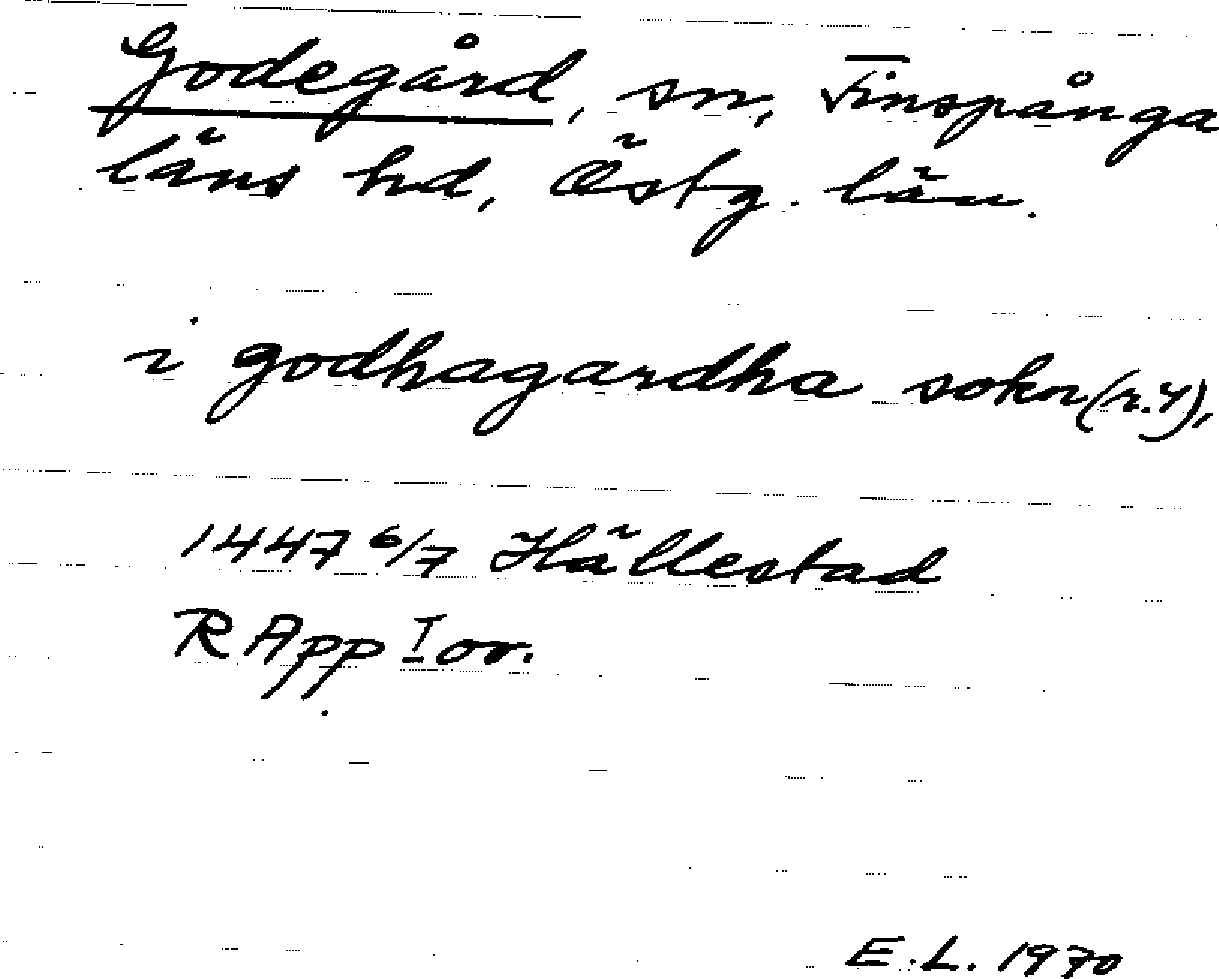 Godegård, sn, Finspånga
läns hd, Östg. län.
i godhagardha sokn (r.4),
1447 6/7 Hällestad
RApp I or.
E.L. 1970